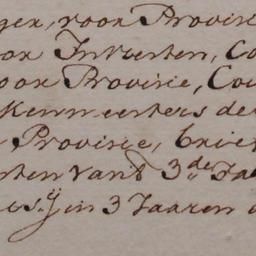 gen, voor Provisi
oor Intresten, Co
voor Provisie, Cou
kenmeesters de
Provisie, brie
sten van't 3.de Ja
in 3 Jaaren